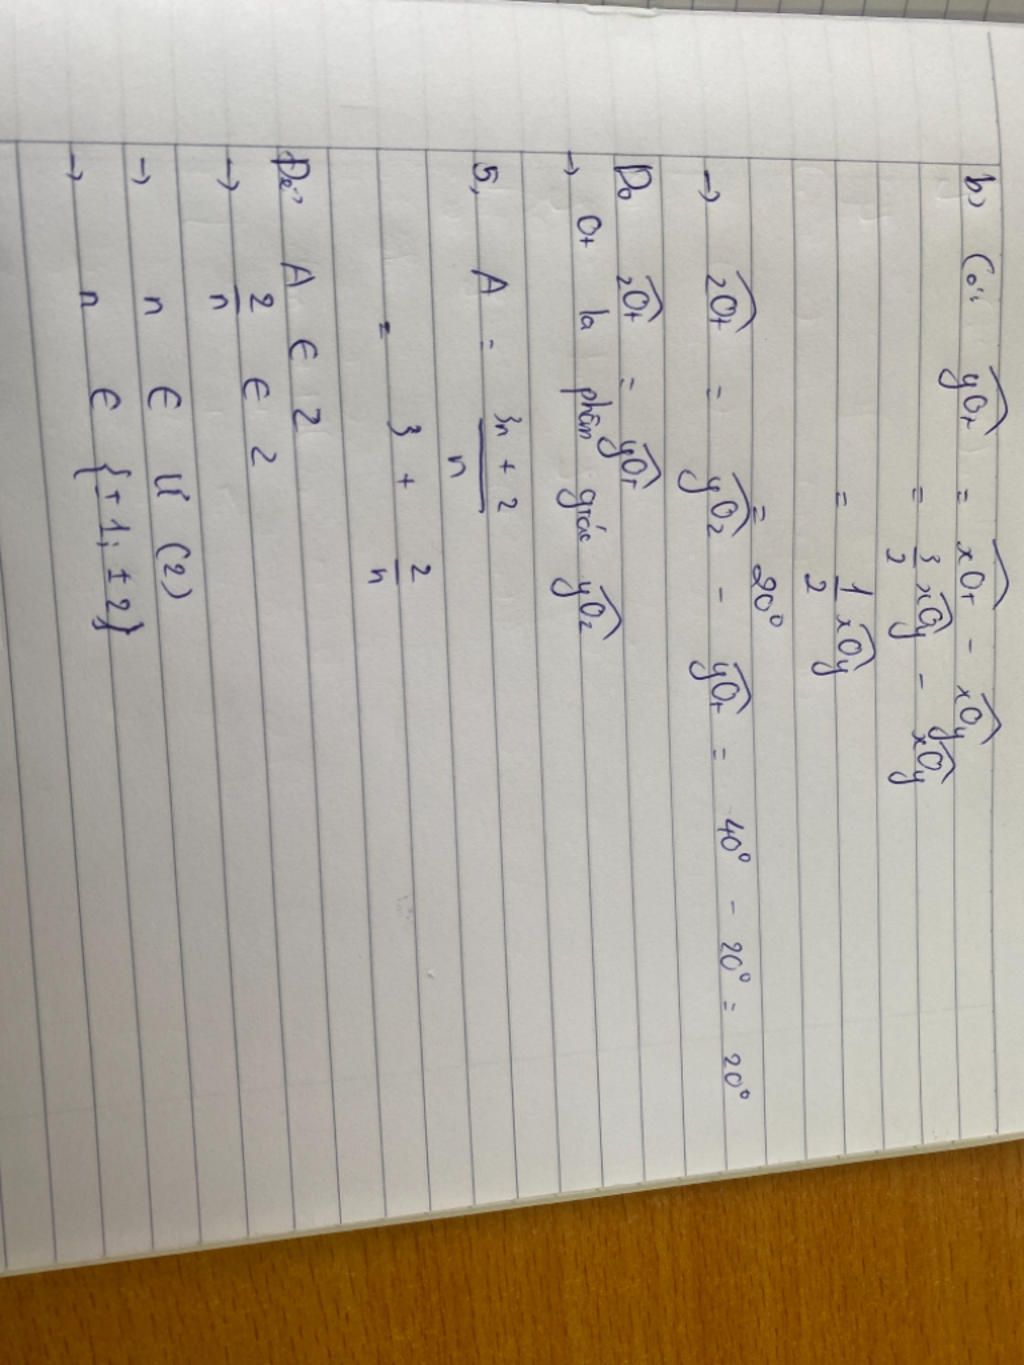 b, Có: yOt = xOt - xOy
= 3/2 xOy - xOy
= 1/2 xOy
= 20°
→ zOt = yOz - yOt = 40° - 20° = 20°
Do zOt = yOt
→ Ot là phân giác yOz
5, A = (3n + 2)/n
= 3 + 2/n
Để A ∈ Z
→ 2/n ∈ Z
→ n ∈ Ư (2)
→ n ∈ {±1; ±2}